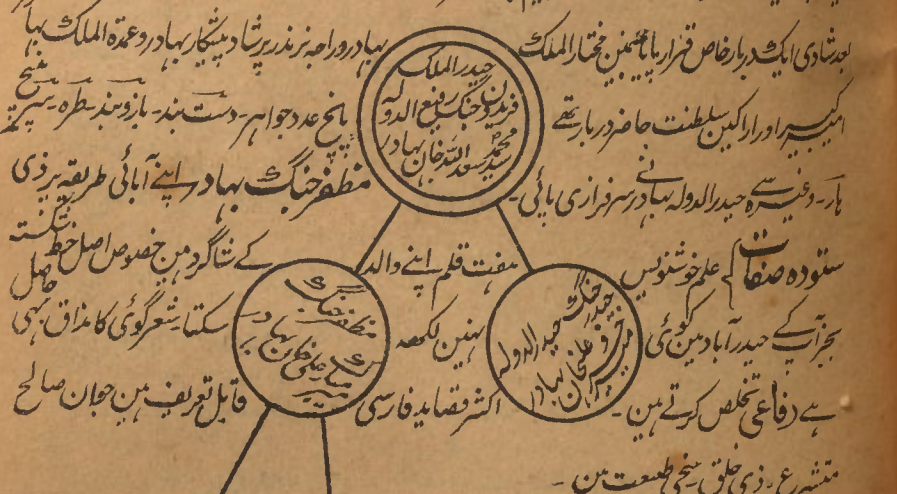 بعد شادی ایک دربار خاص قرار پایا جسمین مختار الملک بہادر و راجہ نرندر پرشاد پیشکار بہادر و عمدۃ الملک بہا
امیر کبیر اور اراکین سلطنت حاضر دربار تھے پانچ عدد جواہر۔ دست بند۔ بازو بند۔ طرہ۔ سرپیچ
ہار۔ وغیرہ سے حیدر الدولہ بہادر نے سرفرازی پائی۔ مظفر جنگ بہادر اپنے آبائی طریقہ پر ذی
ستودہ صفات کے علم خوشنویس ہفت قلم اپنے والد کے شاگرد ہین خصوص اصل خط شکستہ
بجز آپ کے حیدرآباد مین کوئی نہین لکھہ سکتا۔ شعر گوئی کا مذاق بہی حاصل
ہے دفاعی تخلص کرتے ہین۔ اکثر قصاید فارسی قابل تعریف ہین جوان صالح
متشرع۔ ذی خلق سخی طبیعت ہین۔
حیدر الملک
فریدون جنگ رفیع الدولہ
سید محمد سعد اللہ خان بہادر
حیدر جنگ حیدر الدولہ
علیخان بہادر
مظفر جنگ
علی خان بہادر
میر